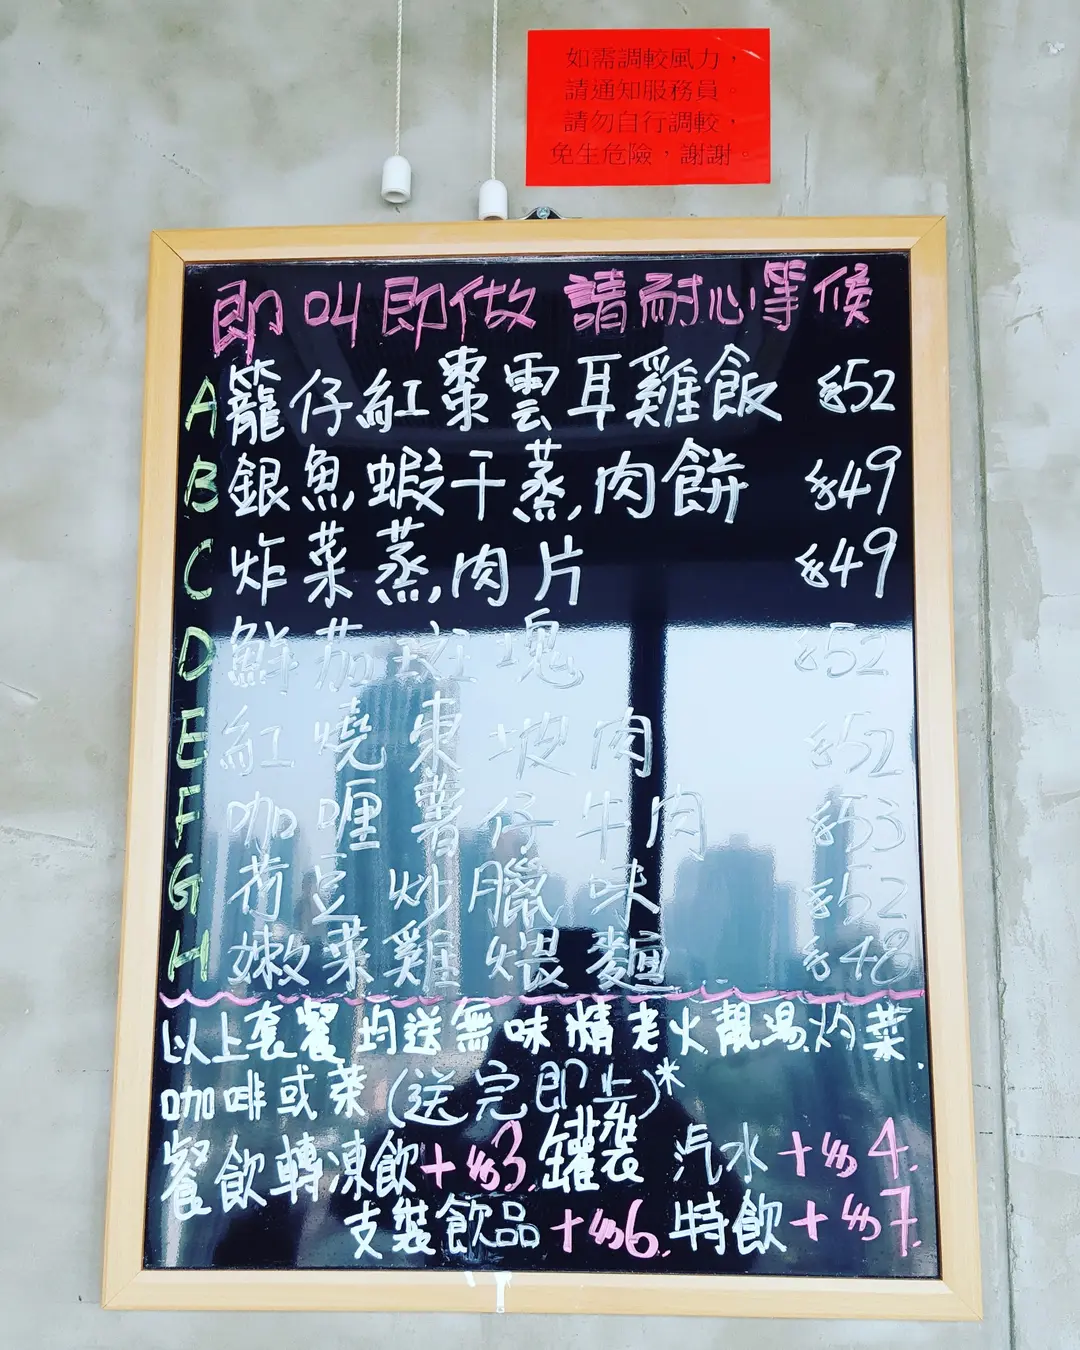 如需調較風力，
請通知服務員。
請勿自行調較，
免生危險，謝謝。
即叫即做 請耐心等候
A 籠仔紅棗雲耳雞飯 $52
B 銀魚蝦干蒸肉餅 $49
C 炸菜蒸肉片 $49
D 鮮茄斑塊 $52
E 紅燒東坡肉 $52
F 咖喱薯仔牛肉 $53
G 荷豆炒臘味 $52
H 嫩菜雞煨麵 $48
以上套餐均送無味精老火靚湯.灼菜.
咖啡或茶(送完即止)*
餐飲轉凍飲+$3.罐裝汽水+$4.
支裝飲品+$6.特飲+$7.